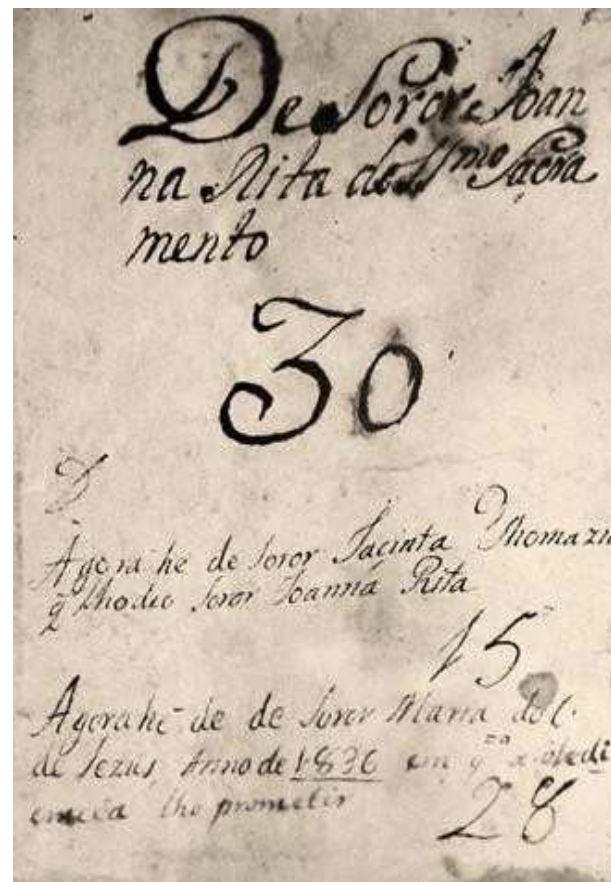 De Soror Joan
na Rita do SSmo Sacra
mento
30
D
Agora he de Soror Jacinta Thomazia
q̃ lho deo Soror Joanna Rita
15
Agora he de de Soror Maria do C.
de Jezus, Anno de 1836 em qto a obedi
encia lho prometir
28